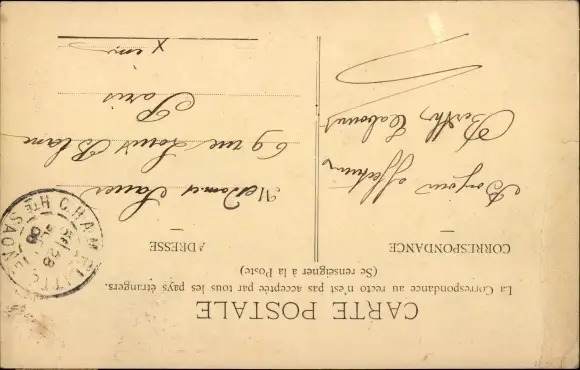 CARTE POSTALE
La Correspondance au recto n'est pas acceptée par tous les pays étrangers.
(Se renseigner à la Poste)
CORRESPONDANCE
Bonjour affectueux
Berthe
ADRESSE
Madame Sauer
69 rue Louis Blanc
Paris
X ème
CHAMPLITTE
HTE SAONE
28
06